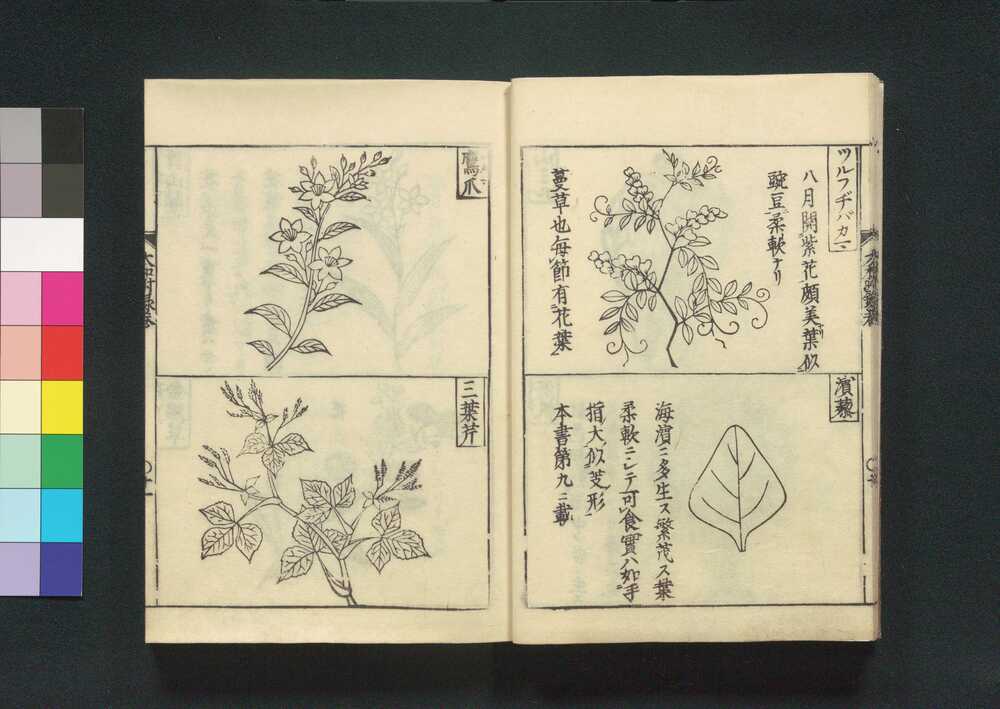 ツルフヂバカマ
八月開紫花頗美葉似
豌豆柔軟ナリ
蔓草也毎節有花葉
濱藜
海濱ニ多生ス繁茂ス葉
柔軟ニシテ可食實ハ如手
指大似芝形
本書第九ニ載
鷹爪
三葉芹